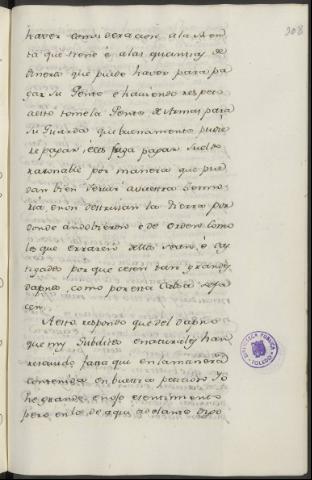 208
haver consideracion a la Ren
ta que tiene è a las quantias de
dineros que puede haver para pa
gar su Gente è haviendo respecto
a esto tome la Gente de Armas para
su Guarda que buenamente pudie
re pagar è les faga pagar Sueldo
razonable por manera que pue
dan bien servir a vuestra Senno
ria, è non destruian la tierra por
donde andobieren è de orden como
los que erraren dello sean
tigados por que cesen tan grandes
dapnos, como por esta Cabsa se fa
cen.
A esto respondo que del dapno
que my Subditos è naturales han
rescivido fasta que en la manera
contenida en vuestra peticion Yo
he grande enojo è sentimiento
pero en lo de aqui adelante dapo
BIBLIOTECA PUBLICA
TOLEDO